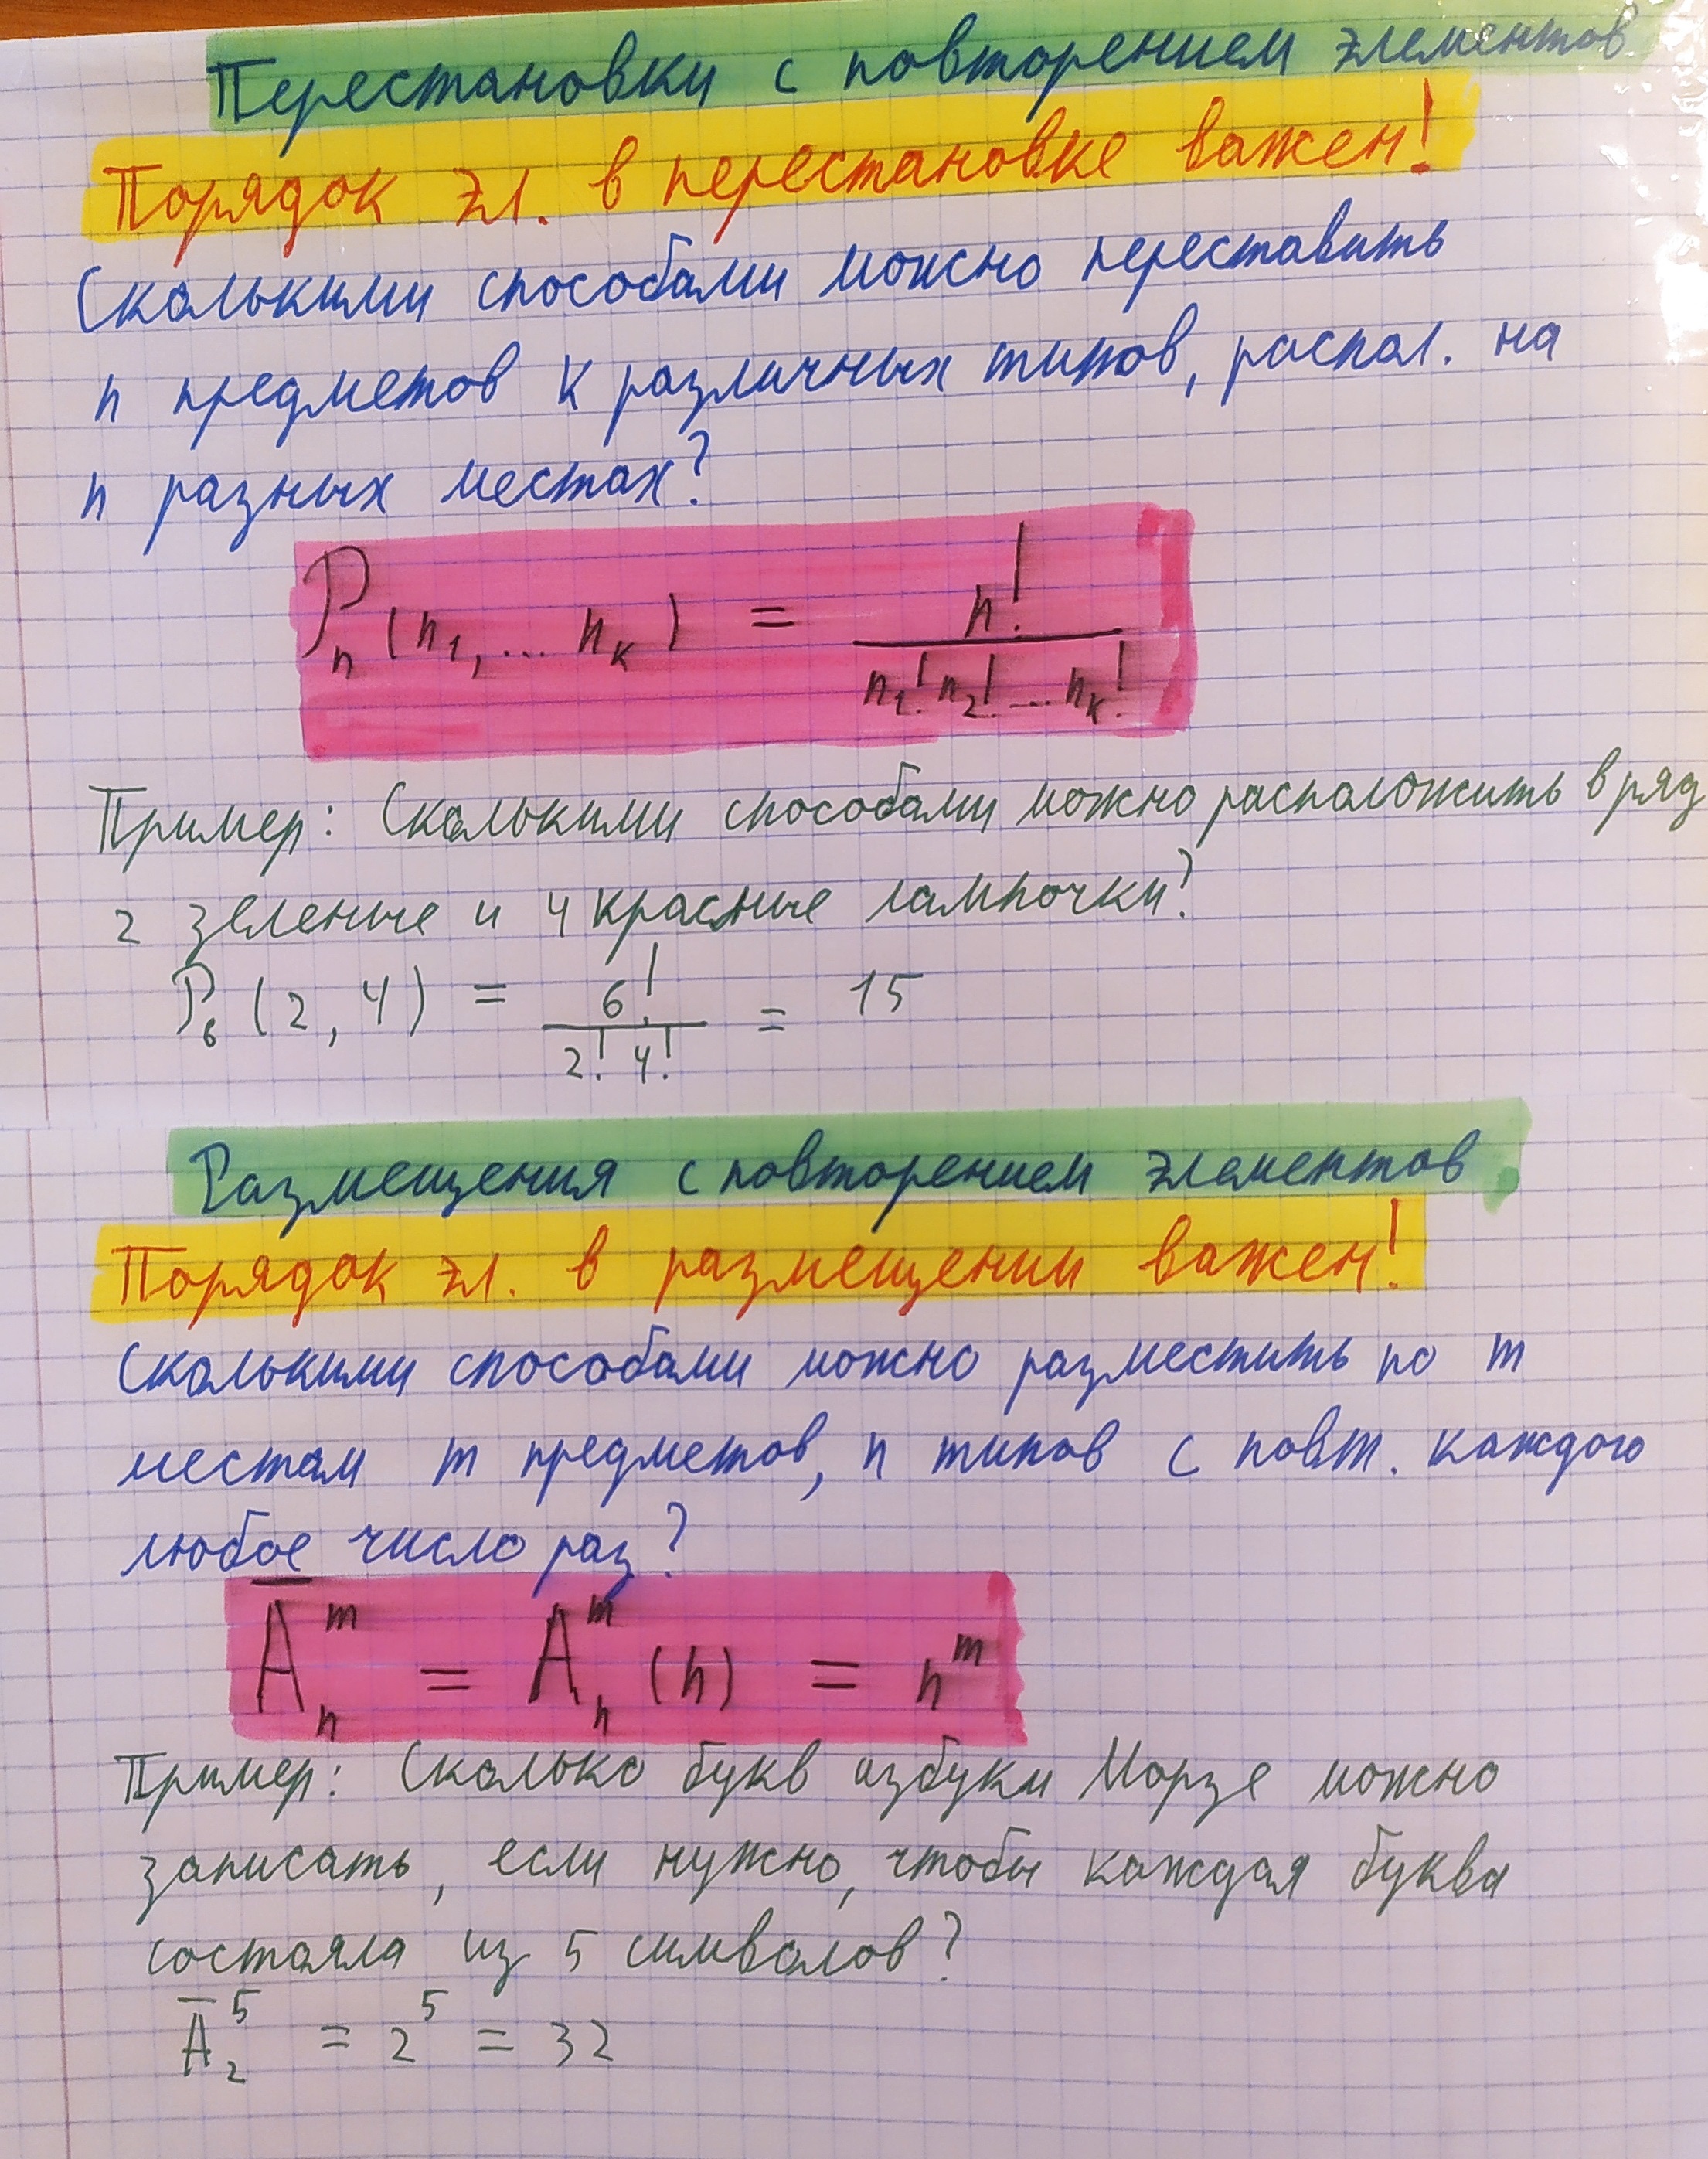 Перестановки с повторением элементов
Порядок эл. в перестановке важен!
Сколькими способами можно переставить
n предметов k различных типов, распол. на
n разных местах?
Pₙ(n₁,... nₖ) = n! / n₁! n₂! ... nₖ!
Пример: Сколькими способами можно расположить в ряд
2 зеленые и 4 красные лампочки?
P₆(2, 4) = 6! / 2! 4! = 15
Размещения с повторением элементов.
Порядок эл. в размещении важен!
Сколькими способами можно разместить по m
местам m предметов, n типов с повт. каждого
любое число раз?
A̅ₙᵐ = Aₙᵐ(n) = nᵐ
Пример: Сколько букв азбуки Морзе можно
записать, если нужно, чтобы каждая буква
состояла из 5 символов?
A̅₂⁵ = 2⁵ = 32